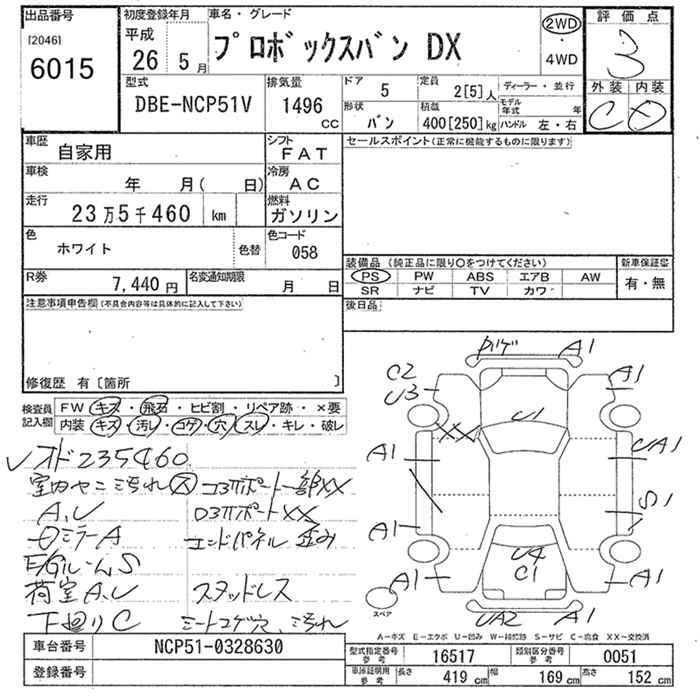 出品番号
[2046]
6015
初度登録年月
平成
26 5月
車名・グレード
プロボックスバン DX
2WD
4WD
評価点
3
外装 内装
C D
型式
DBE-NCP51V
排気量
1496
CC
ドア 5
定員 2[5]人
形状 バン
積載 400[250]kg
ディーラー・並行
モデル年式 年
ハンドル 左・右
車歴
自家用
シフト
FAT
車検
年 月( 日)
冷房
AC
走行
23万5千460 km
燃料
ガソリン
色
ホワイト
色替
色コード
058
R券
7,440円
名変通知期限
月 日
注意事項申告欄(不具合内容等は具体的に記入して下さい)
修復歴 有〔箇所 〕
セールスポイント(正常に機能するものに限ります)
装備品(純正品に限り〇をつけてください)
PS PW ABS エアB AW
SR ナビ TV カワ
新車保証書
有・無
後日品
検査員記入欄
FW キズ・飛石・ヒビ割・リペア跡・×要
内装 キズ・汚レ・コゲ・穴・スレ・キレ・破レ
オド235460
室内ヤニ汚れ 大 コ3Πポート一部XX
A.U ロ3Πポート XX
ミラーA エンドパネル 歪み
E/GルームS
荷室A.U スタッドレス
下廻りC シートコゲ穴、汚れ
A1
C2
U3
A1
U1
XX
A1
UA1
S1
A1
U4
C1
A1
A1
UA2 A1
スペア
A-キズ E-エクボ U-凹み W-補修跡 S-サビ C-腐食 XX-交換済
車台番号
NCP51-0328630
登録番号
型式指定番号 参考 16517
類別区分番号 参考 0051
車庫証明用 参考
長さ 419cm 幅 169cm 高さ 152cm